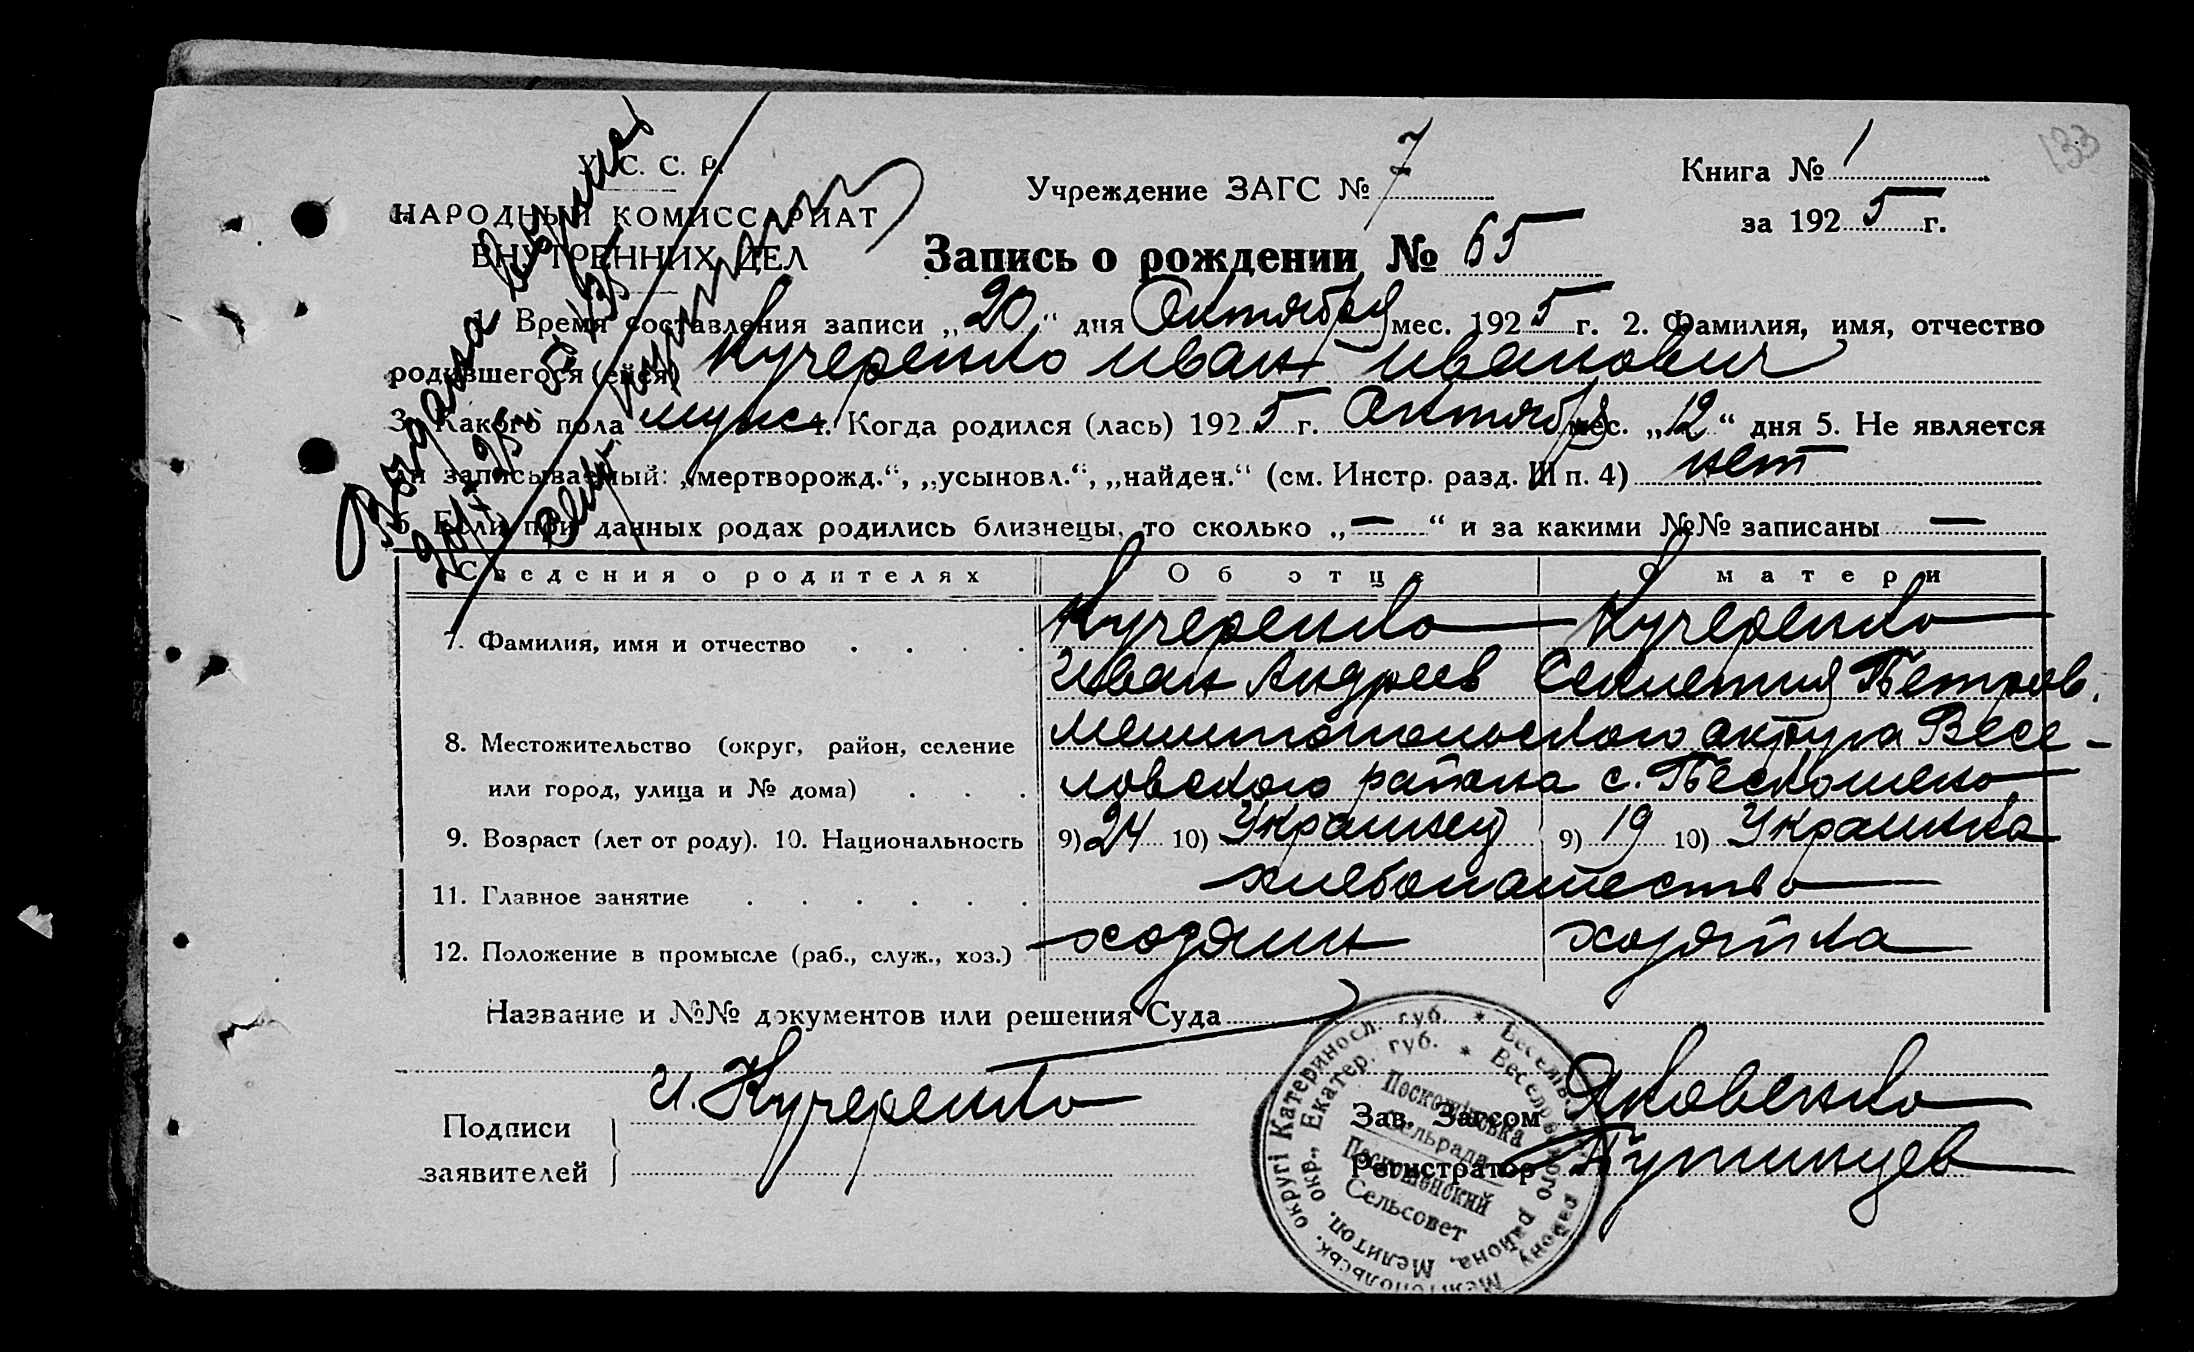 133
У. С. С. Р.
НАРОДНЫЙ КОМИССАРИАТ
ВНУТРЕННИХ ДЕЛ
Учреждение ЗАГС № 7
Книга № 1
за 1925 г.
Запись о рождении № 65
1. Время составления записи „20“ дня Октября мес. 1925 г. 2. Фамилия, имя, отчество
родившегося (ейся) Кучеренко Иван Иванович
3. Какого пола муж 4. Когда родился (лась) 1925 г. Октября мес. „12“ дня 5. Не является
ли записываемый: „мертворожд.“, „усыновл.“, „найден.“ (см. Инстр. разд. III п. 4) нет
6. Если при данных родах родились близнецы, то сколько „—“ и за какими №№ записаны —
Сведения о родителях Об отце О матери
7. Фамилия, имя и отчество Кучеренко Кучеренко
Иван Андреев Секлетия Петров.
8. Местожительство (округ, район, селение Мелитопольского округа Весе-
или город, улица и № дома) ловского района с.
9. Возраст (лет от роду). 10. Национальность 9) 24 10) Украинец 9) 19 10) Украинка
11. Главное занятие хлебопашество
12. Положение в промысле (раб., служ., хоз.) хозяин хозяйка
Название и №№ документов или решения Суда
Подписи
заявителей
И. Кучеренко
Зав. Загсом Яковенко
Регистратор
Катериносл. губ. * Весельв. району Мелітопольськ. округі
Екатер. губ. * Веселовского района, Мелитоп. окр.,
Поскошінська
Сельрада
Поскошенский
Сельсовет
Выдана